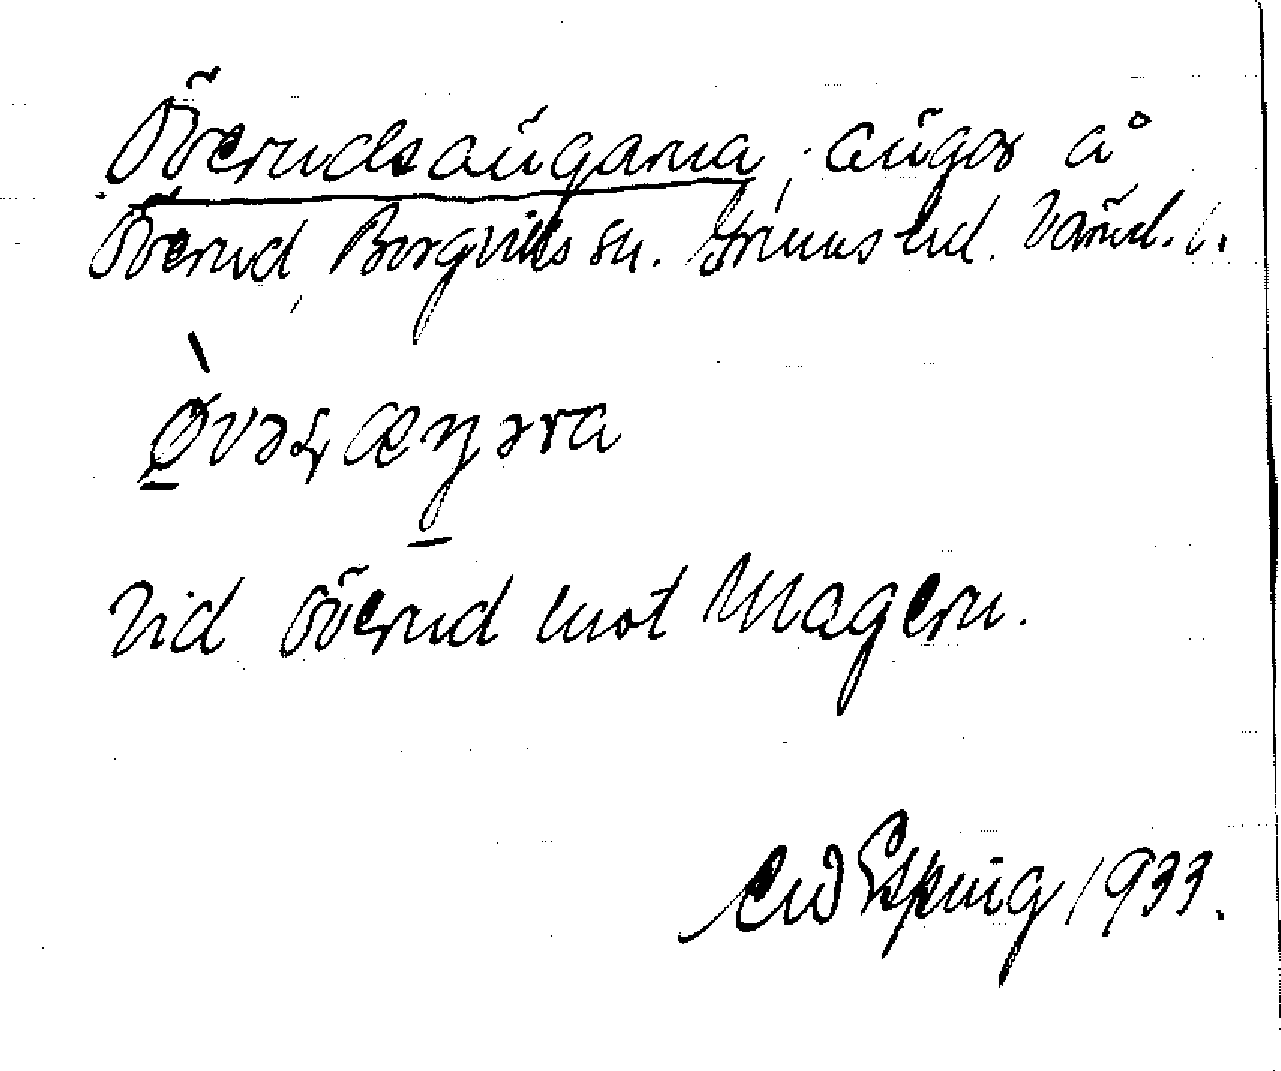 Överudsängarna, ängar å
Överud, Borgviks sn. Grums hd. Värml. l.
Vid Överud mot Magern.
Espling 1933.